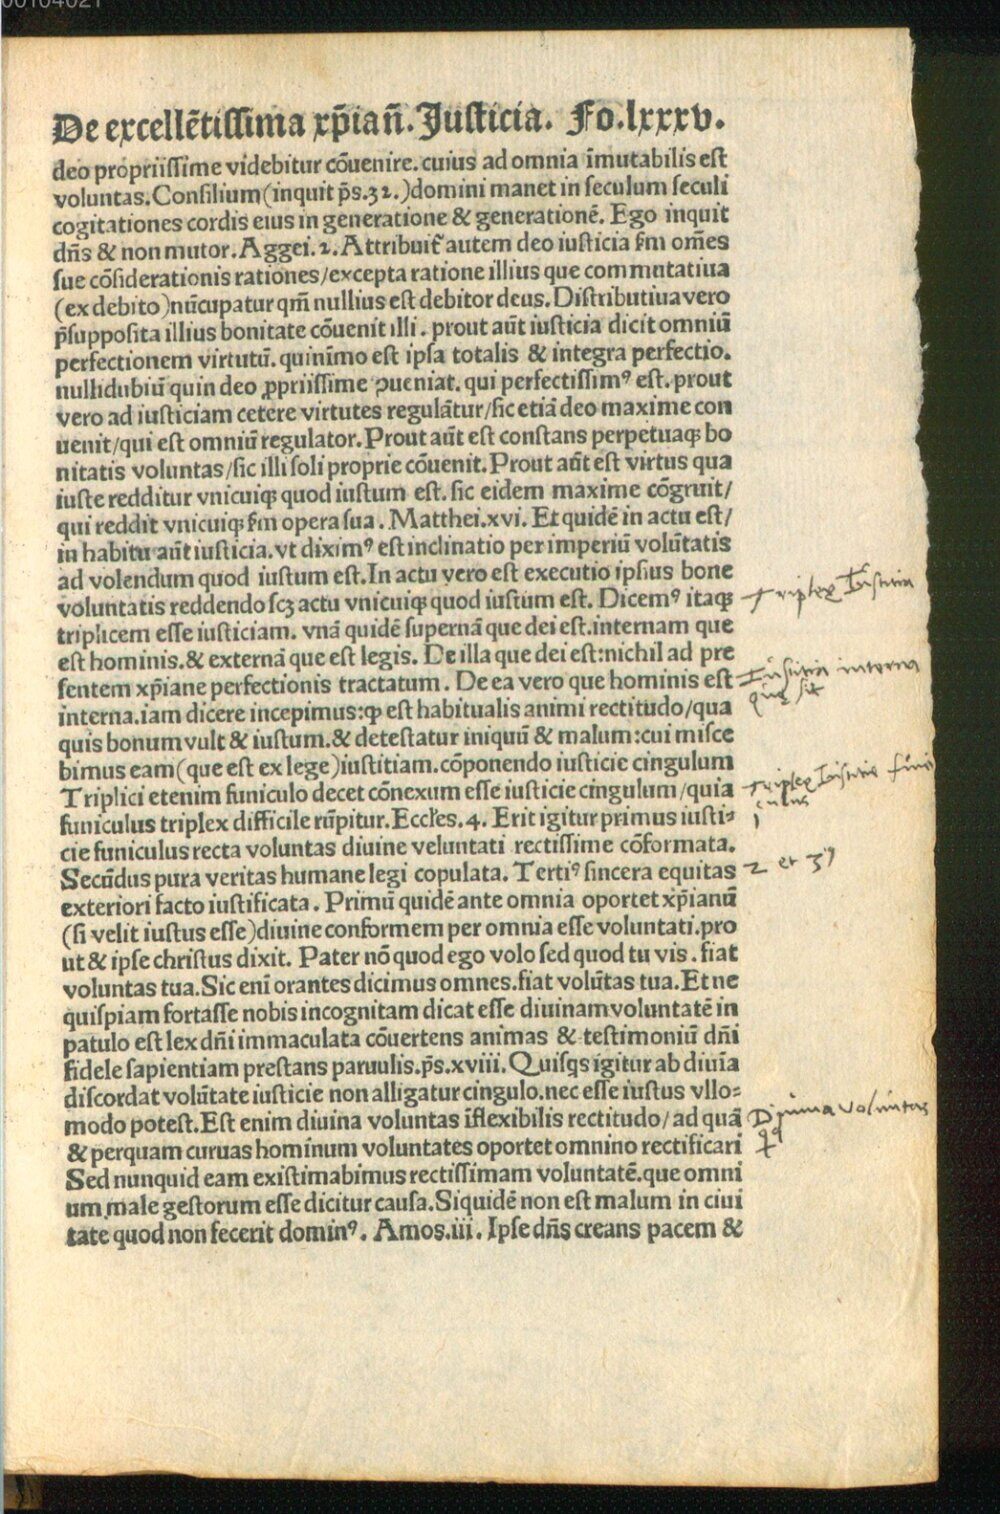 00104021
De excellētissima xp̄iañ. Justicia. Fo.lxxxv.
deo propriissime videbitur cōuenire. cuius ad omnia īmutabilis est
voluntas. Consilium (inquit p̄s.32.) domini manet in seculum seculi
cogitationes cordis eius in generatione & generationē. Ego inquit
dn̄s & non mutor. Aggei.2. Attribuit᷑ autem deo iusticia s̄m om̄es
sue cōsiderationis rationes/excepta ratione illius que commutatiua
(ex debito) nūcupatur qm̄ nullius est debitor deus. Distributiua vero
p̄supposita illius bonitate cōuenit illi. prout aūt iusticia dicit omniū
perfectionem virtutū. quinīmo est ipsa totalis & integra perfectio.
nulli dubiū quin deo ꝓpriissime ꝯueniat. qui perfectissimꝰ est. prout
vero ad iusticiam cetere virtutes regulātur/sic etiā deo maxime con
uenit/qui est omniū regulator. Prout aūt est constans perpetuaqꝫ bo
nitatis voluntas/sic illi soli proprie cōuenit. Prout aūt est virtus qua
iuste redditur vnicuiqꝫ quod iustum est. sic eidem maxime cōgruit/
qui reddit vnicuiqꝫ s̄m opera sua. Matthei.xvi. Et quidē in actu est/
in habitu aūt iusticia. vt diximꝰ est inclinatio per imperiū volūtatis
ad volendum quod iustum est. In actu vero est executio ipsius bone
voluntatis reddendo scꝫ actu vnicuiqꝫ quod iustum est. Dicemꝰ itaqꝫ
Triplex Iusticia
triplicem esse iusticiam. vnā quidē supernā que dei est. internam que
est hominis. & externā que est legis. De illa que dei est: nichil ad pre
sentem xp̄iane perfectionis tractatum. De ea vero que hominis est
Iusticia interna
que sit
interna. iam dicere incepimus: ꝙ est habitualis animi rectitudo/qua
quis bonum vult & iustum. & detestatur iniquū & malum: cui misce
bimus eam (que est ex lege) iustitiam. cōponendo iusticie cingulum
Triplici etenim funiculo decet cōnexum esse iusticie cingulum/quia
triplex Iusticie funi
culus
1
funiculus triplex difficile rūpitur. Eccłes.4. Erit igitur primus iusti-
cie funiculus recta voluntas diuine veluntati rectissime cōformata.
Secūdus pura veritas humane legi copulata. Tertiꝰ sincera equitas
2 et 3ꝰ
exteriori facto iustificata. Primū quidē ante omnia oportet xp̄ianū
(si velit iustus esse) diuine conformem per omnia esse voluntati. pro
ut & ipse christus dixit. Pater nō quod ego volo sed quod tu vis. fiat
voluntas tua. Sic eni orantes dicimus omnes. fiat volūtas tua. Et ne
quispiam fortasse nobis incognitam dicat esse diuinam voluntatē in
patulo est lex dn̄i immaculata cōuertens animas & testimoniū dn̄i
fidele sapientiam prestans paruulis. p̄s.xviii. Quisq̄s igitur ab diuīa
discordat volūtate iusticie non alligatur cingulo. nec esse iustus vllo=
modo potest. Est enim diuina voluntas īflexibilis rectitudo/ad quā
Diuina voluntas
& perquam curuas hominum voluntates oportet omnino rectificari
Sed nunquid eam existimabimus rectissimam voluntatē. que omni
um male gestorum esse dicitur causa. Siquidē non est malum in ciui
tate quod non fecerit dominꝰ. Amos.iii. Ipse dn̄s creans pacem &